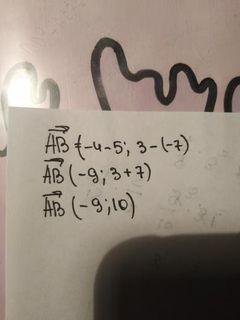 AB (-4-5; 3-(-7)
AB (-9; 3+7)
AB (-9; 10)